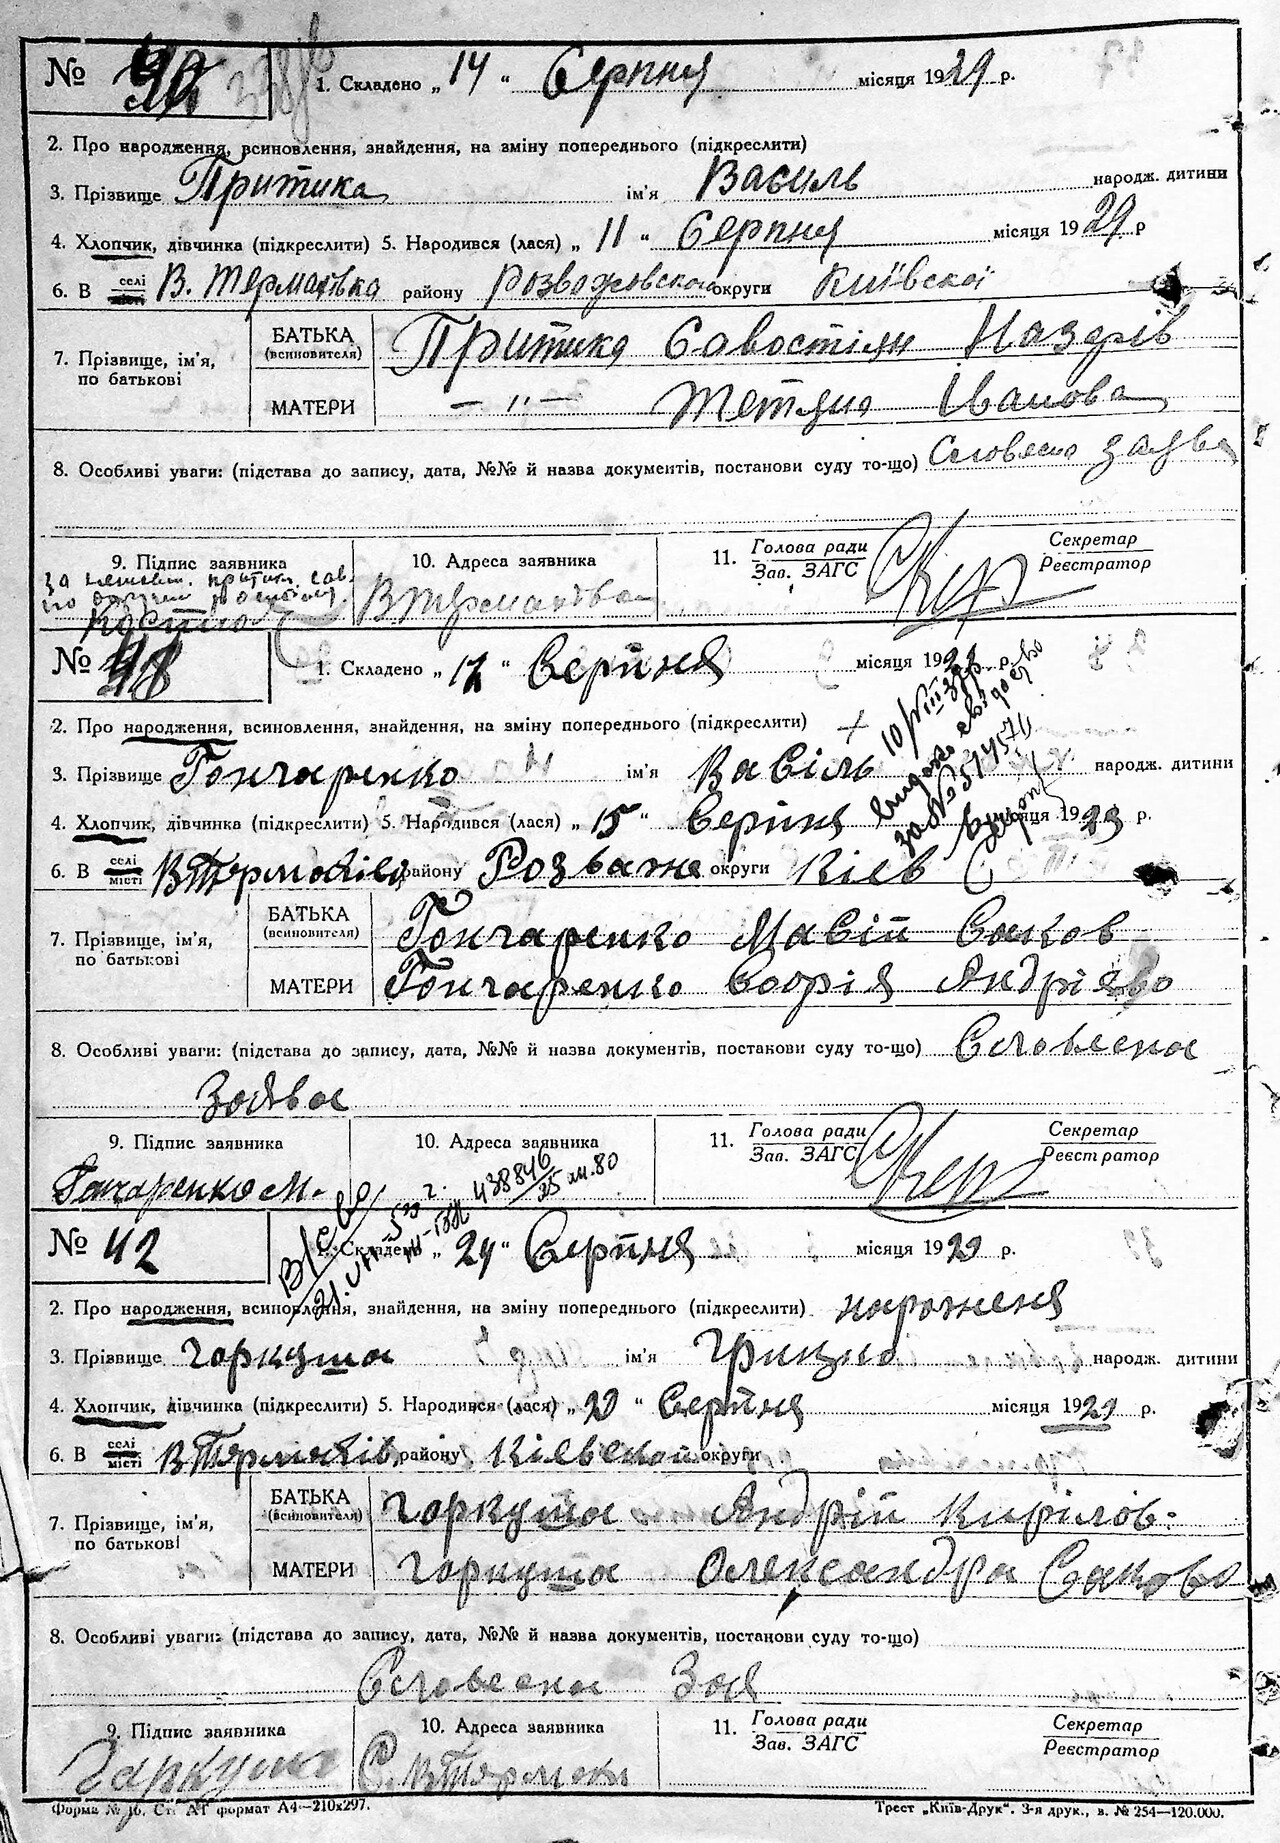 № 40 1. Складено „ 14 “ Серпня місяця 1929 р.
2. Про народження, всиновлення, знайдення, на зміну попереднього (підкреслити)
3. Прізвище Притика ім'я Василь народж. дитини
4. Хлопчик, дівчинка (підкреслити) 5. Народився (лася) „ 11 “ Серпня місяця 1929 р
6. В селі місті В. Термахівка району Розважовського округи Київскої
7. Прізвище, ім'я, по батькові БАТЬКА (всиновителя) Притика Савостіян Назарів
МАТЕРИ — „ — Тетяна Іванова
8. Особливі уваги: (підстава до запису, дата, №№ й назва документів, постанови суду то-що) Словесна заява
9. Підпис заявника 10. Адреса заявника 11. Голова ради Зав. ЗАГС Секретар Реєстратор
за неписьм. Притик. Сав.
Костюк В Термахівка
№ 41 1. Складено „ 17 “ Серпня місяця 1929 р.
2. Про народження, всиновлення, знайдення, на зміну попереднього (підкреслити) +
10/VIII
видано свідоцтво
за № 514571
3. Прізвище Гончаренко ім'я Васіль народж. дитини
4. Хлопчик, дівчинка (підкреслити) 5. Народився (лася) „ 15 “ Серпня місяця 1929 р.
6. В селі місті В Термахівка району Розваже округи Кіев
7. Прізвище, ім'я, по батькові БАТЬКА (всиновителя) Гончаренко Мавій Саков
МАТЕРИ Гончаренко Софія Андрієва
8. Особливі уваги: (підстава до запису, дата, №№ й назва документів, постанови суду то-що) Словесна
Заява
9. Підпис заявника 10. Адреса заявника 11. Голова ради Зав. ЗАГС Секретар Реєстратор
Гончаренко М.
438846
25 80
№ 42 1. Складено „ 24 “ Серпня місяця 1929 р.
2. Про народження, всиновлення, знайдення, на зміну попереднього (підкреслити) нарожненя
3. Прізвище Горкуша ім'я Грицко народж. дитини
4. Хлопчик, дівчинка (підкреслити) 5. Народився (лася) „ 20 “ Серпня місяця 1929 р.
6. В селі місті В Термахів району Кіевскои округи
7. Прізвище, ім'я, по батькові БАТЬКА (всиновителя) Горкуша Андрій Кирілов
МАТЕРИ Горкуша Олександра Сакова
8. Особливі уваги: (підстава до запису, дата, №№ й назва документів, постанови суду то-що)
Словесна Зая
9. Підпис заявника 10. Адреса заявника 11. Голова ради Зав. ЗАГС Секретар Реєстратор
Гаркуша С. В Термахи
Форма № 16. Ст. А1 формат А4—210х297. Трест „Київ-Друк“. 3-я друк., в. № 254—120.000.